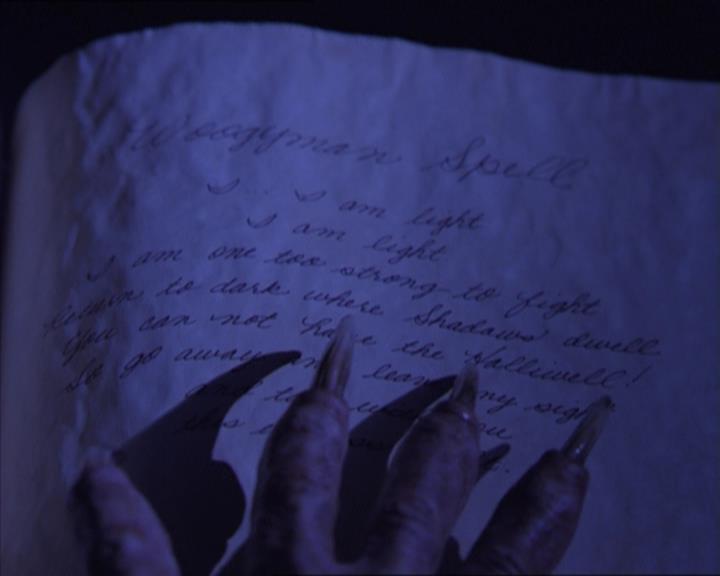 Woogyman Spell
I... I am light
I am light
I am one too strong to fight
Return to dark where Shadows dwell
You can not have the Halliwell!
So go away and leave my sight
and you
this